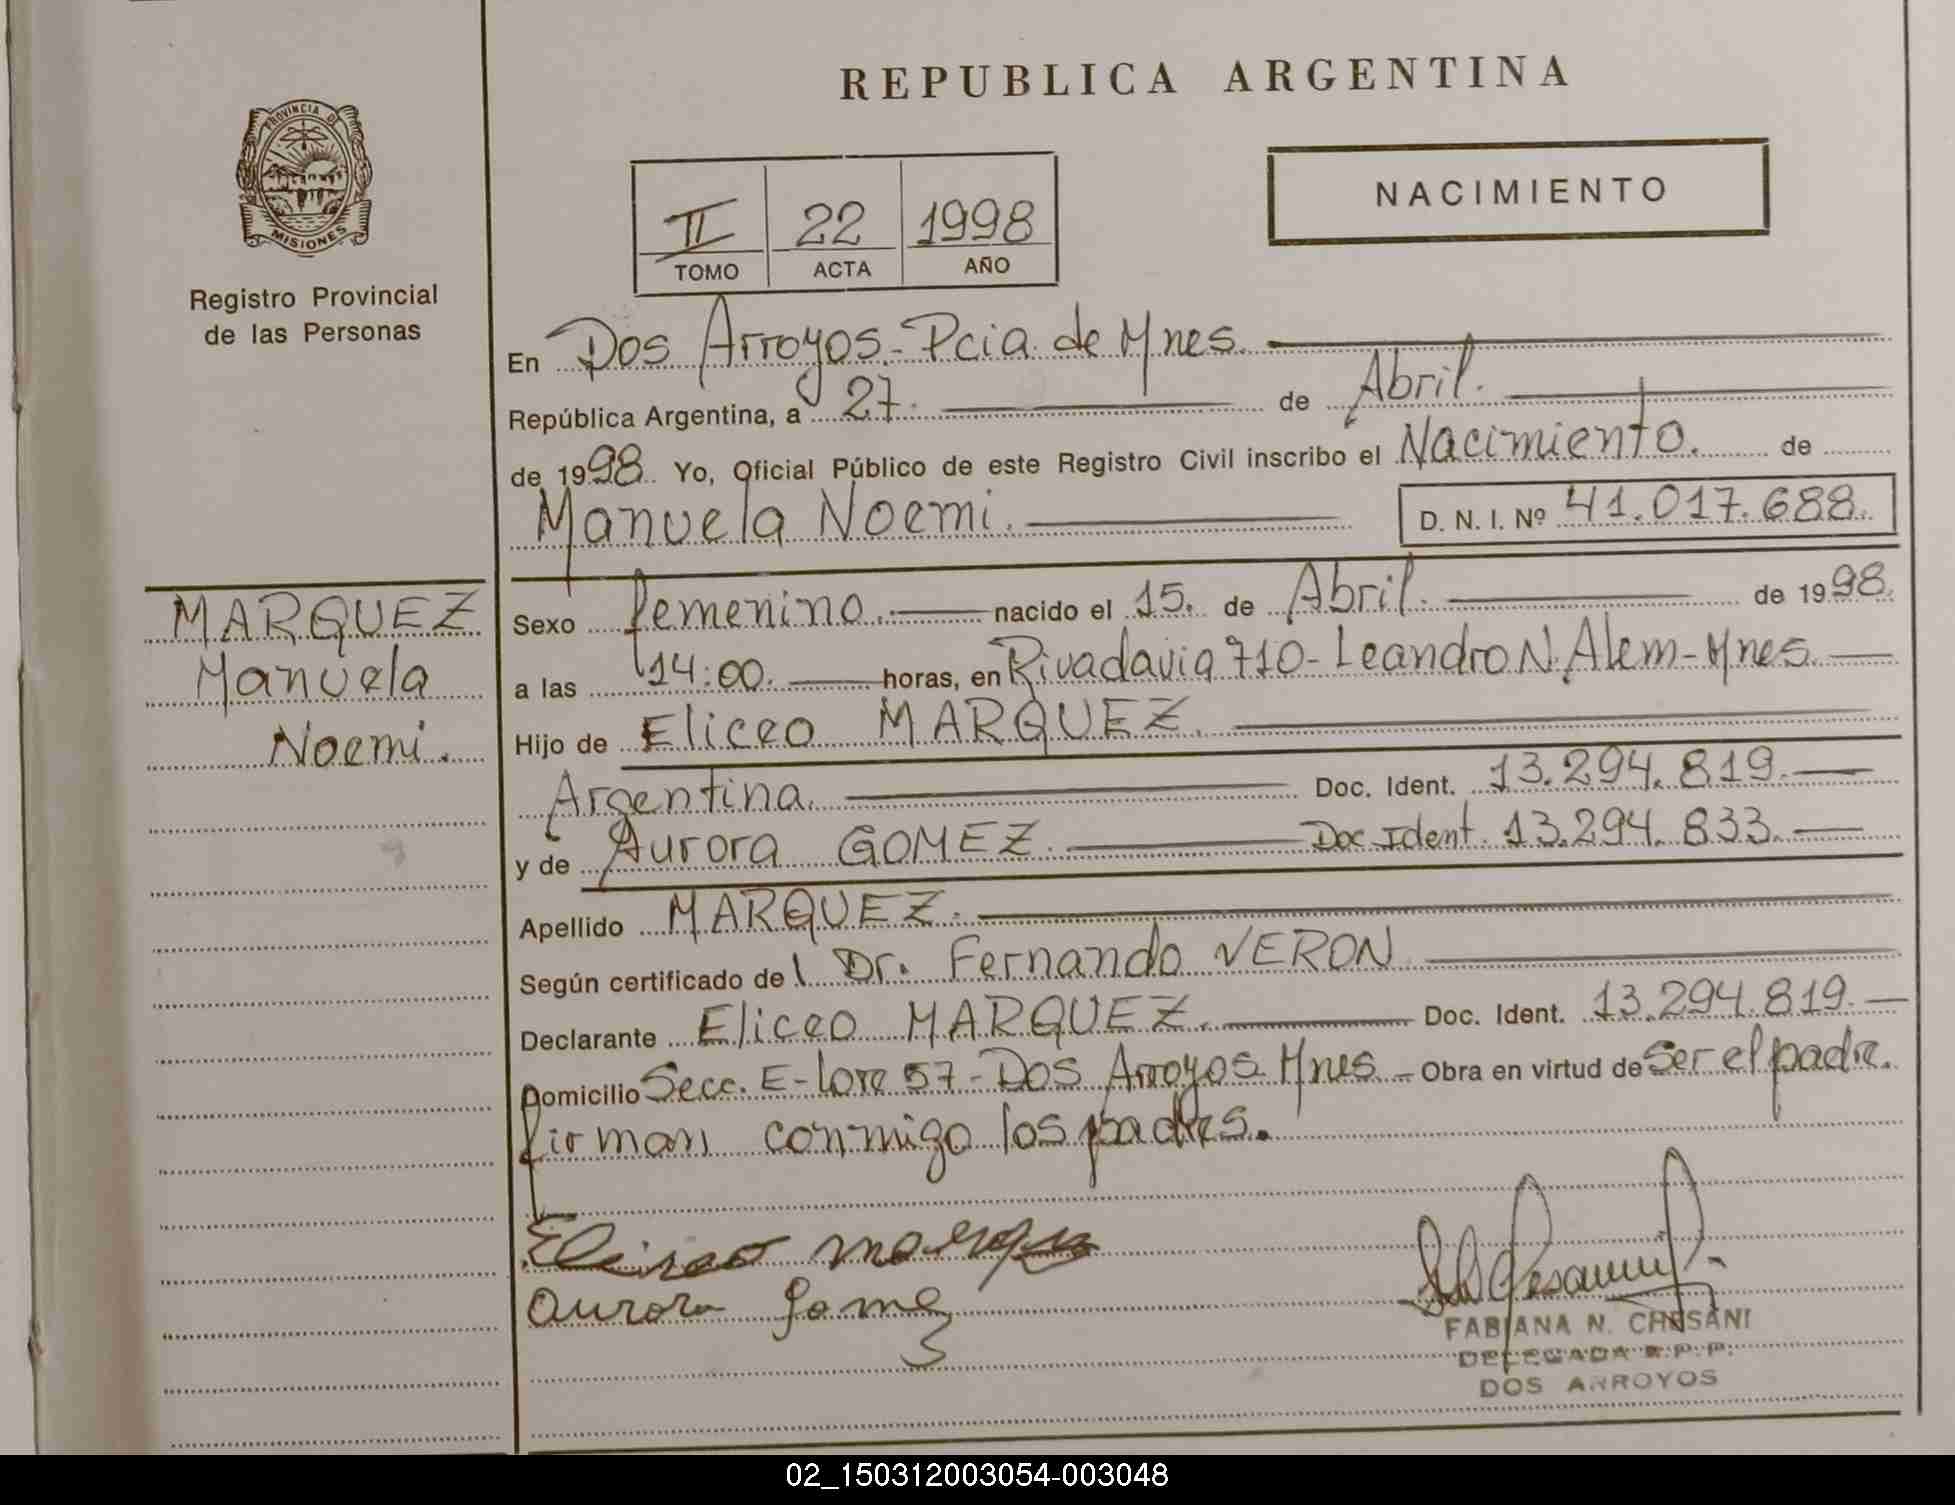 REPUBLICA ARGENTINA
PROVINCIA DE
MISIONES
Registro Provincial
de las Personas
II 22 1998
TOMO ACTA AÑO
NACIMIENTO
En Dos Arroyos - Pcia de Mnes.
República Argentina, a 27. de Abril.
de 1998. Yo, Oficial Público de este Registro Civil inscribo el Nacimiento. de
Manuela Noemi. D. N. I. Nº 41.017.688.
MARQUEZ
Manuela
Noemi.
Sexo femenino. nacido el 15. de Abril. de 1998.
a las 14:00. horas, en Rivadavia 710 - Leandro N. Alem - Mnes.
Hijo de Eliceo MARQUEZ.
Argentina. Doc. Ident. 13.294.819.
y de Aurora GOMEZ. Doc Ident. 13.294.833.
Apellido MARQUEZ.
Según certificado del Dr. Fernando VERON
Declarante Eliceo MARQUEZ. Doc. Ident. 13.294.819.
Domicilio Secc. E - lote 57 - Dos Arroyos Mnes - Obra en virtud de Ser el padre.
firman conmigo los padres.
Eliseo marquez
Aurora Gomez
FABIANA N. CHESANI
DELEGADA R.P.P.
DOS ARROYOS
02_150312003054-003048